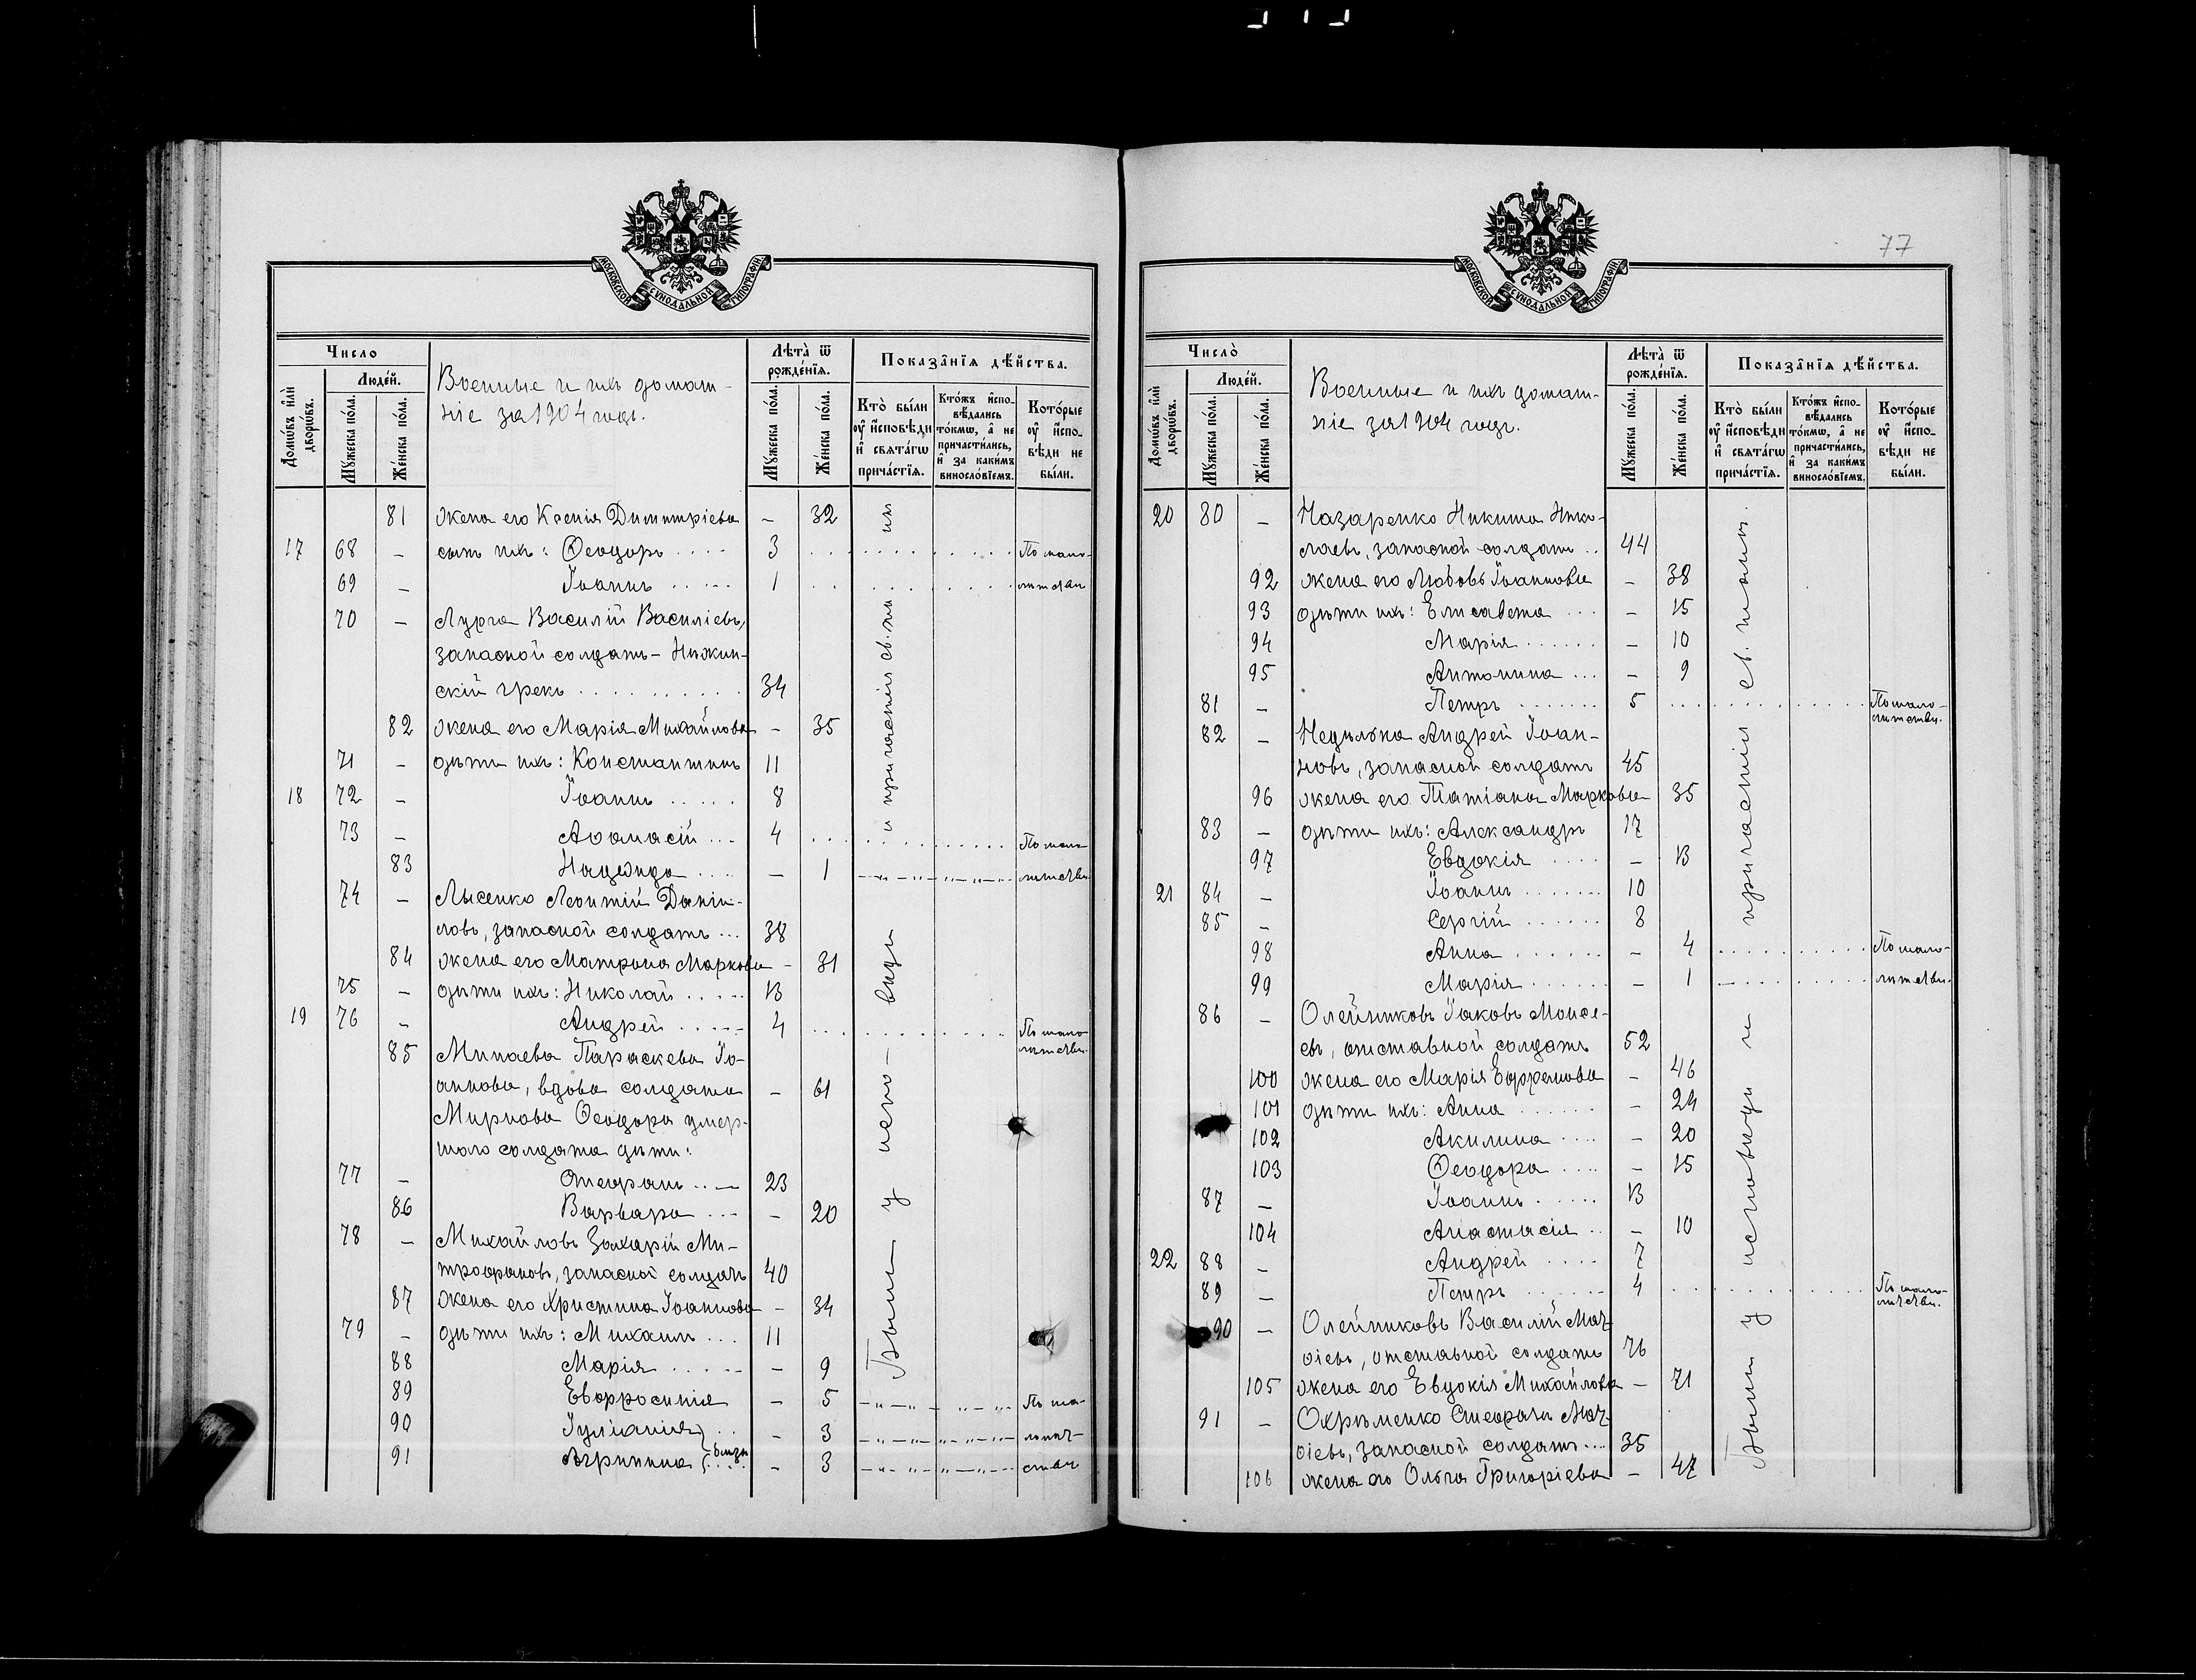 77
МОСКОВСКОЙ СѴНОДАЛЬНОЙ ТИПОГРАФІИ
Число
Домѡвъ и҆лѝ дворѡвъ.
Люде́й.
Мꙋ́жеска по́ла.
Же́нска по́ла.
Военные и ихъ домаш-
ніе за 1904 годъ.
Лѣ́та ѿ рожде́нїѧ.
Мꙋ́жеска по́ла.
Же́нска по́ла.
Показа̑нїѧ дѣ́йства.
Кто̀ бы́ли ᲂу҆ и҆сповѣ́ди и҆ свѧта́гѡ прича́стїѧ.
Кто́жъ и҆сповѣ́дались то́кмѡ, а҆ не причасти́лись, и҆ за каки́мъ виносло́вїемъ.
Кото́рые ᲂу҆ и҆сповѣ́ди не бы́ли.
81 жена его Ксенія Димитріева - 32
17 68 - сынъ ихъ: Ѳеодоръ .... 3 По мало-
69 - Іоаннъ ..... 1 лѣтству
70 - Лурга Василій Василіевъ,
запасной солдатъ - Нѣжин-
скій грекъ .......... 34
82 жена его Марія Михайлова - 35
71 - дѣти ихъ: Константинъ 11
18 72 - Іоаннъ ..... 8
73 - Аѳанасій ... 4 По мало-
83 Надежда .... - 1 лѣтству.
74 - Лысенко Леонтій Данiи-
ловъ, запасной солдатъ ... 38
84 жена его Матрона Маркова - 31
75 - дѣти ихъ: Николай ..... 13
19 76 - Андрей ..... 4 По мало-
лѣтству.
85 Минаева Параскева Іо-
аннова, вдова солдата - 61
Миркова Ѳеодора умер-
шаго солдата дѣти:
77 - Стефанъ ... 23
86 Варвара ... - 20
78 - Михайловъ Захарій Ми-
трофановъ, запасной солдатъ 40
87 жена его Христина Іоаннова - 34
79 - дѣти ихъ: Михаилъ ... 11
88 Марія ..... - 9
89 Евфросинія - 5 По ма-
90 Іуліанія .. - 3 лолѣт-
91 Агрипина близн. - 3 ству
Были у испо- вѣди и причастія св. та- инъ
Число̀
Домѡвъ и҆лѝ дворѡвъ.
Люде́й.
Мꙋ́жеска по́ла.
Же́нска по́ла.
Военные и ихъ домаш-
ніе за 1904 годъ.
Лѣ́та ѿ рожде́нїѧ.
Мꙋ́жеска по́ла.
Же́нска по́ла.
Показа̑нїѧ дѣ́йства.
Кто̀ бы́ли ᲂу҆ и҆сповѣ́ди и҆ свѧта́гѡ прича́стїѧ.
Кто́жъ и҆сповѣ́дались то́кмѡ, а҆ не причасти́лись, и҆ за каки́мъ виносло́вїемъ.
Кото́рые ᲂу҆ и҆сповѣ́ди не бы́ли.
МОСКОВСКОЙ СѴНОДАЛЬНОЙ ТИПОГРАФІИ
20 80 - Назаренко Никита Нико-
лаевъ, запасной солдатъ .. 44
92 жена его Любовь Іоаннова - 38
93 дѣти ихъ: Елисавета ... - 15
94 Марія ...... - 10
95 Антонина ... - 9
81 - Петръ ....... 5 По мало-
лѣтству.
82 - Недѣлька Андрей Іоан-
новъ, запасной солдатъ 45
96 жена его Татіана Маркова 35
83 - дѣти ихъ: Александръ 17
97 Евдокія .... - 13
21 84 - Іоаннъ ....... 10
85 - Сергій ...... 8
98 Анна ...... - 4 По мало-
99 Марія ...... - 1 лѣтству.
86 - Олейниковъ Іаковъ Моисе-
евъ, отставной солдатъ 52
100 жена его Марія Ефремова - 46
101 дѣти ихъ: Анна ...... - 24
102 Акилина .... - 20
103 Ѳеодора .... - 15
87 - Іоаннъ ...... 13
104 Анастасія .. - 10
22 88 - Андрей .... 7
89 - Петръ ....... 4 По мало-
лѣтству.
90 - Олейниковъ Василій Мат-
ѳіевъ, отставной солдатъ 76
105 жена его Евдокія Михайлова - 71
91 - Охрѣменко Стефанъ Мат-
ѳіевъ, запасной солдатъ .... 35
106 жена его Ольга Григоріева - 47
Были у исповѣди и причастія св. таинъ.